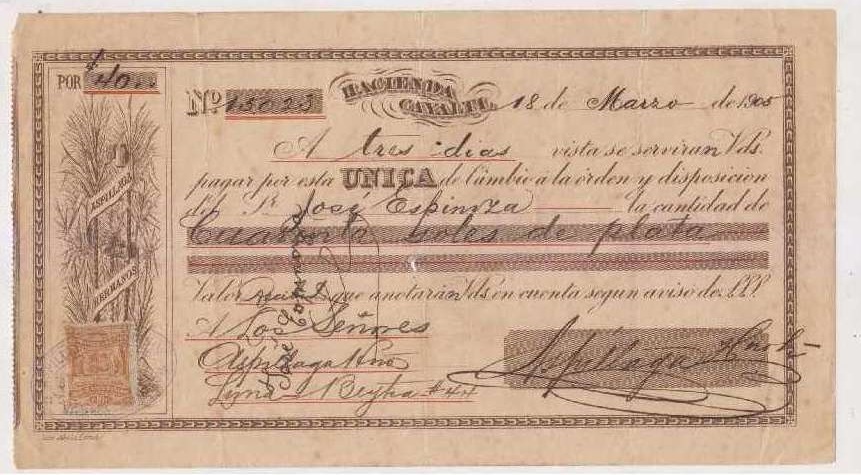 POR $ 40..
Nº 15025 HACIENDA CAYALTI. 18 de Marzo de 1905
A tres dias vista se serviran Vds.
pagar por esta UNICA de Cambio á la órden y disposicion
del Sr. José Espinoza la cantidad de
Cuarenta soles de plata
Valor que anotarán Vds en cuenta segun aviso de
A los Señores
Aspillaga Hnos
Lima
Aspillaga
ASPILLAGA
HERMANOS
José